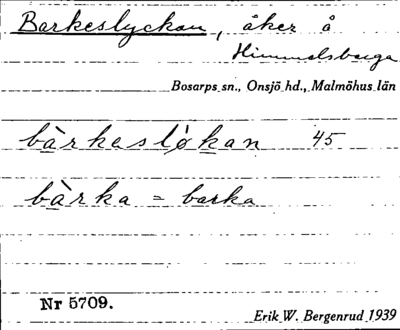 Barkeslyckan, åker å
Himmelsberga
Bosarps sn., Onsjö hd., Malmöhus län
bàrkesløkan 45
bàrka = barka
Nr 5709.
Erik W. Bergenrud 1939